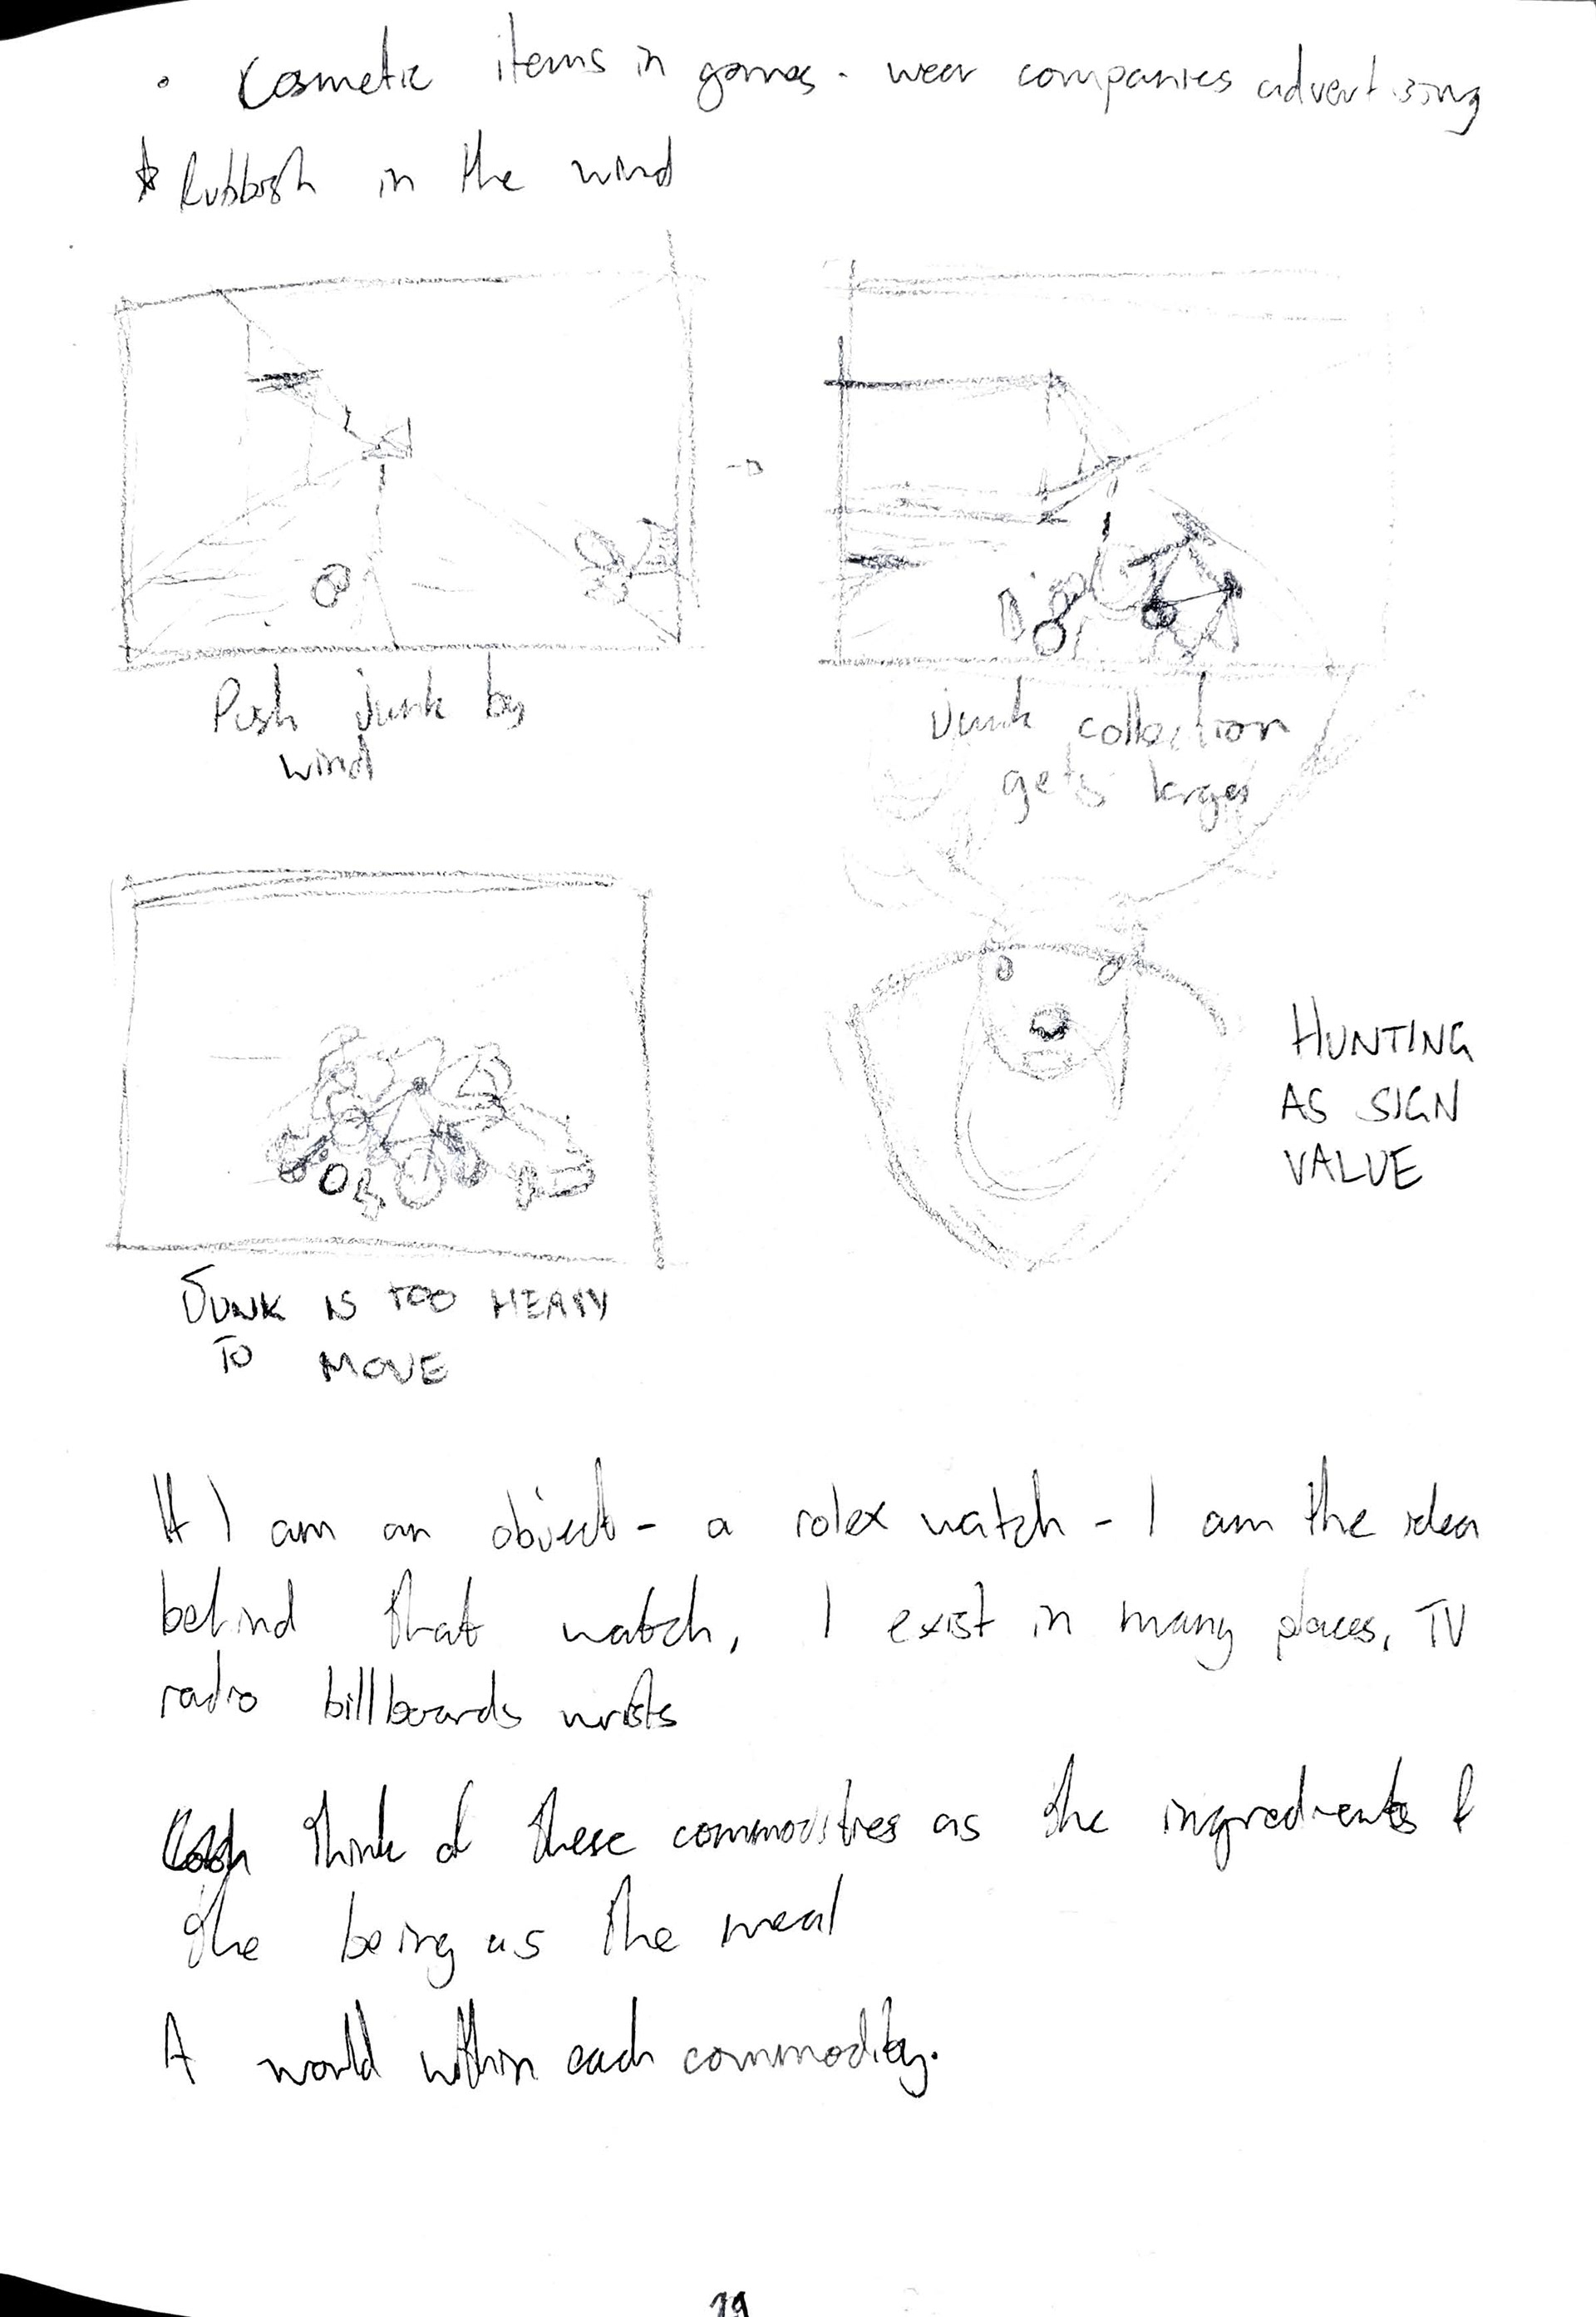 • Cosmetic items in games - wear companies advertising
* Rubbish in the wind
Push junk by
wind
Junk collection
gets larger
HUNTING
AS SIGN
VALUE
JUNK IS TOO HEAVY
TO MOVE
If I am an object - a rolex watch - I am the idea
behind that watch, I exist in many places, TV
radio billboards wrists
think of these commodities as the ingredients &
the being as the meal
A world within each commodity.